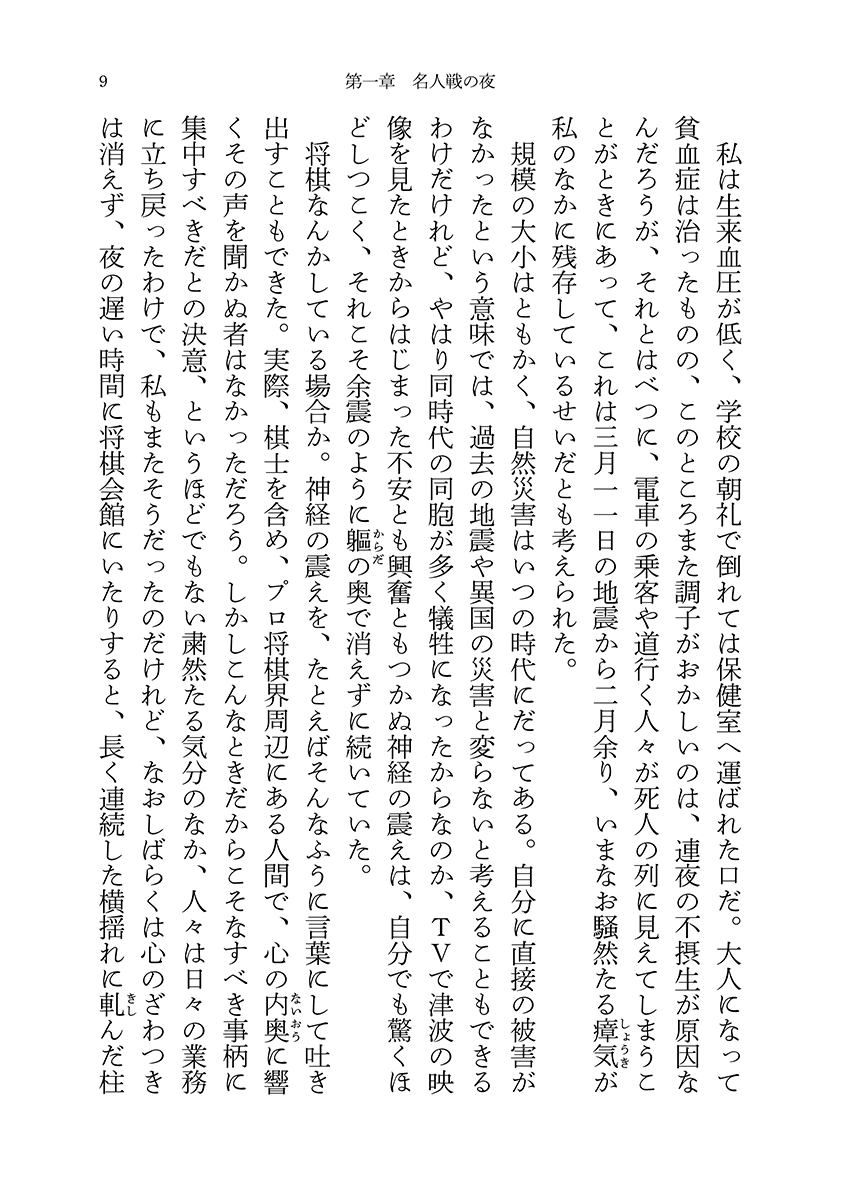 9
第一章　名人戦の夜
私は生来血圧が低く、学校の朝礼で倒れては保健室へ運ばれた口だ。大人になって
貧血症は治ったものの、このところまた調子がおかしいのは、連夜の不摂生が原因な
んだろうが、それとはべつに、電車の乗客や道行く人々が死人の列に見えてしまうこ
とがときにあって、これは三月一一日の地震から二月余り、いまなお騒然たる瘴気しょうきが
私のなかに残存しているせいだとも考えられた。
規模の大小はともかく、自然災害はいつの時代にだってある。自分に直接の被害が
なかったという意味では、過去の地震や異国の災害と変らないと考えることもできる
わけだけれど、やはり同時代の同胞が多く犠牲になったからなのか、TVで津波の映
像を見たときからはじまった不安とも興奮ともつかぬ神経の震えは、自分でも驚くほ
どしつこく、それこそ余震のように軀からだの奥で消えずに続いていた。
将棋なんかしている場合か。神経の震えを、たとえばそんなふうに言葉にして吐き
出すこともできた。実際、棋士を含め、プロ将棋界周辺にある人間で、心の内奥ないおうに響
くその声を聞かぬ者はなかっただろう。しかしこんなときだからこそなすべき事柄に
集中すべきだとの決意、というほどでもない粛然たる気分のなか、人々は日々の業務
に立ち戻ったわけで、私もまたそうだったのだけれど、なおしばらくは心のざわつき
は消えず、夜の遅い時間に将棋会館にいたりすると、長く連続した横揺れに軋きしんだ柱